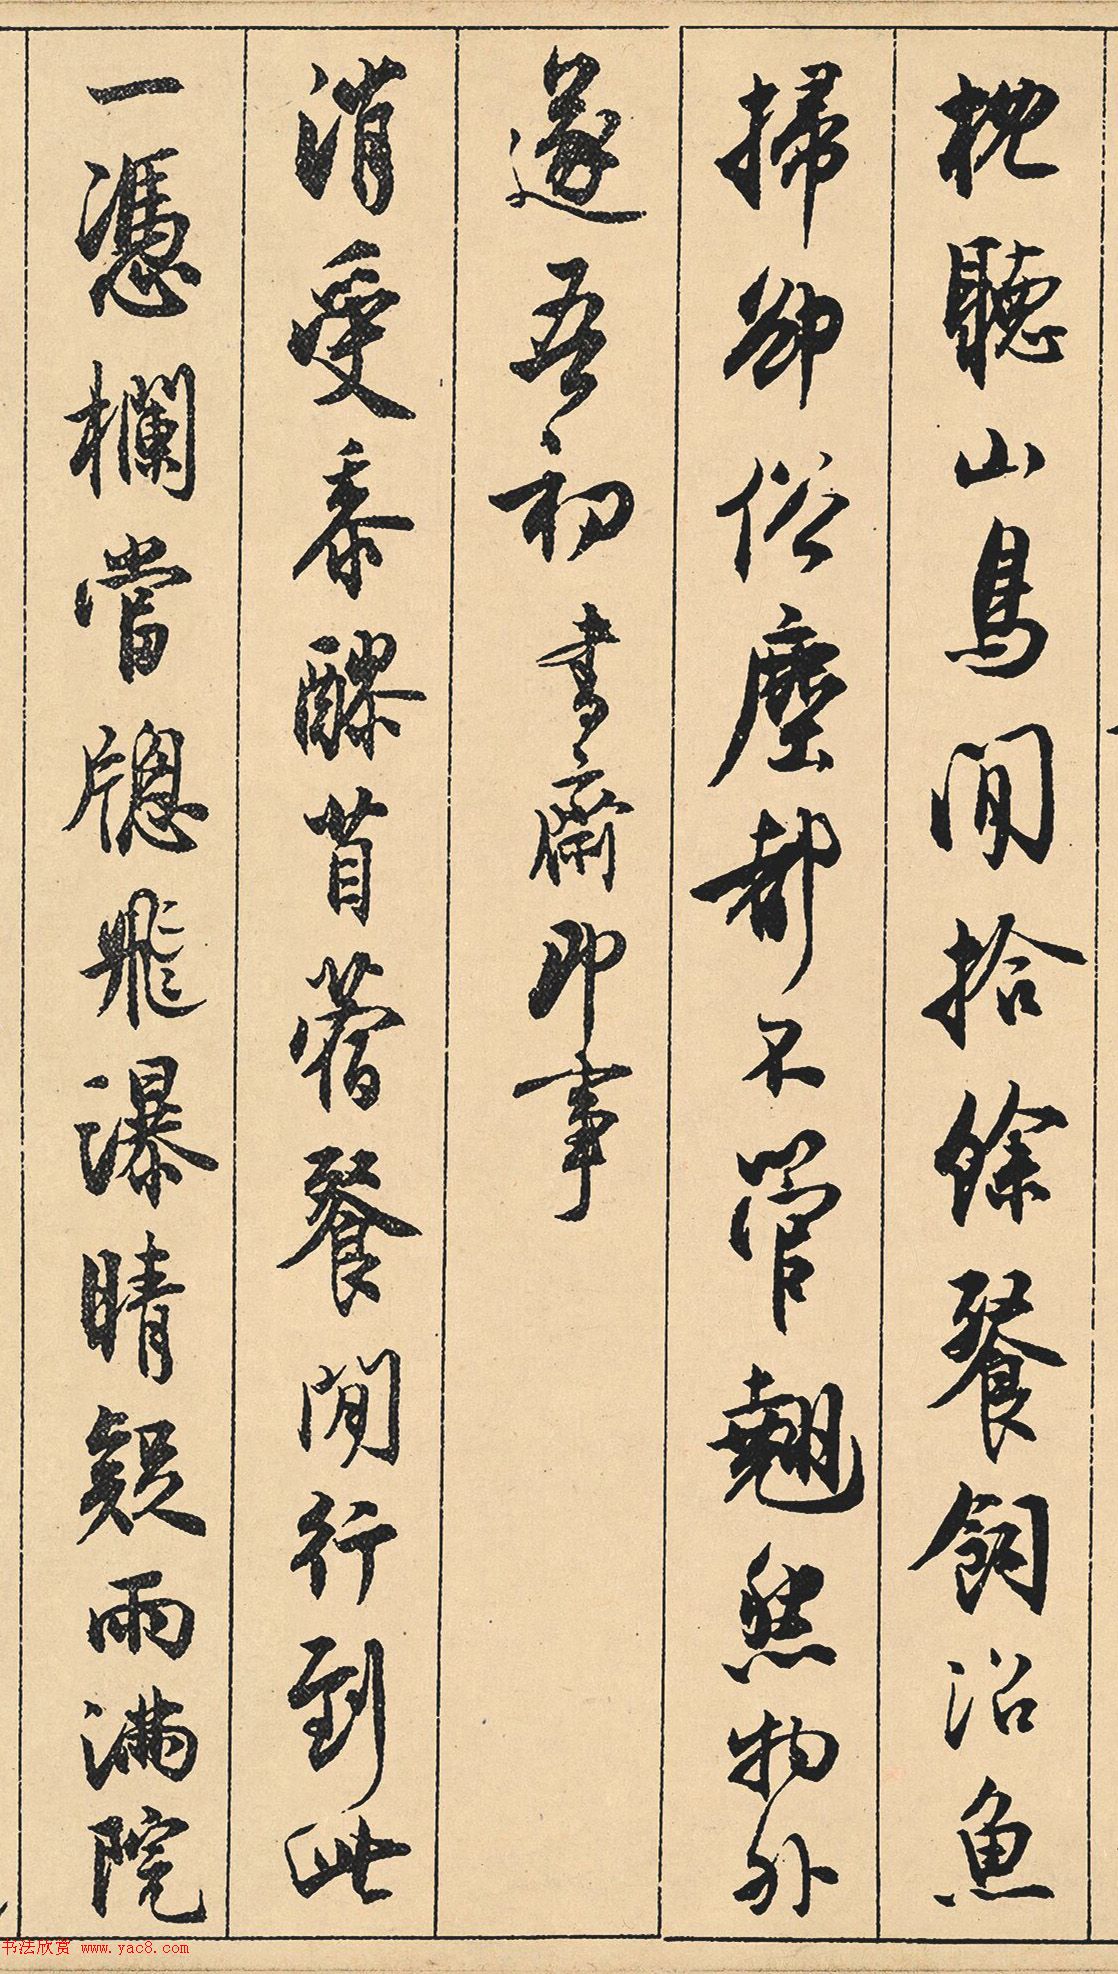 枕聽山鳥閒拾餘餐飼沼魚
掃卻俗塵都不管翹然物外
遂吾初書齋即事
消受黍醪苜蓿餐閒行到此
一憑欄當牕飛瀑晴疑雨滿院
书法欣赏 www.yac8.com